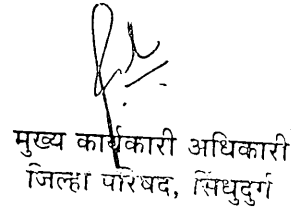 मुख्य कार्यकारी अधिकारी
जिल्हा परिषद, सिंधुदुर्ग